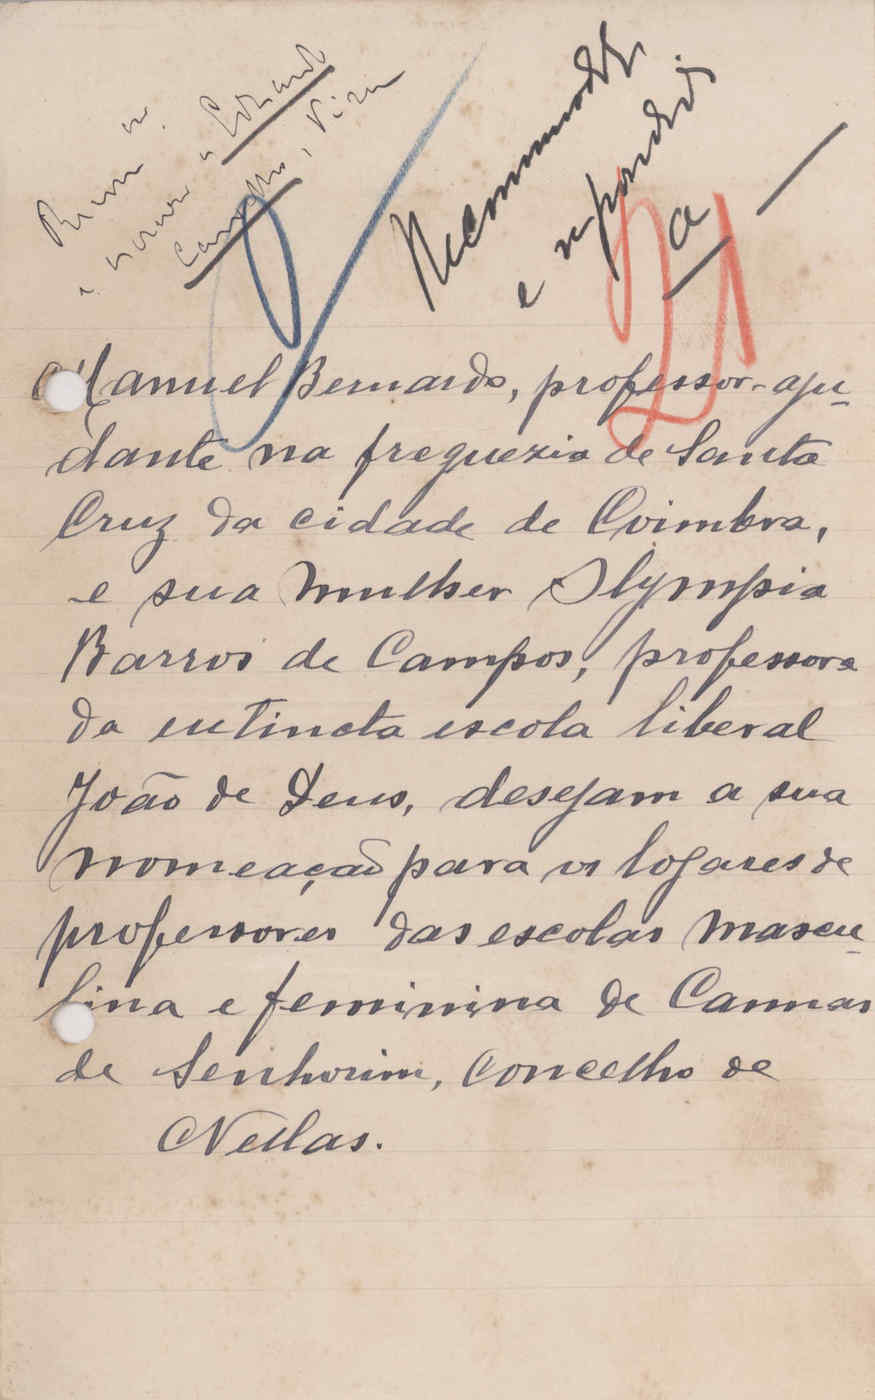 Recommendado
e respondido
a
21
Manuel Bernardo, professor-aju-
dante na freguezia de Santa
Cruz da cidade de Coimbra,
e sua mulher Olympia
Barros de Campos, professora
da extincta escola liberal
João de Deus, desejam a sua
nomeação para os logares de
professores das escolas mascu-
lina e feminina de Cannas
de Senhorim, concelho de
Nellas.